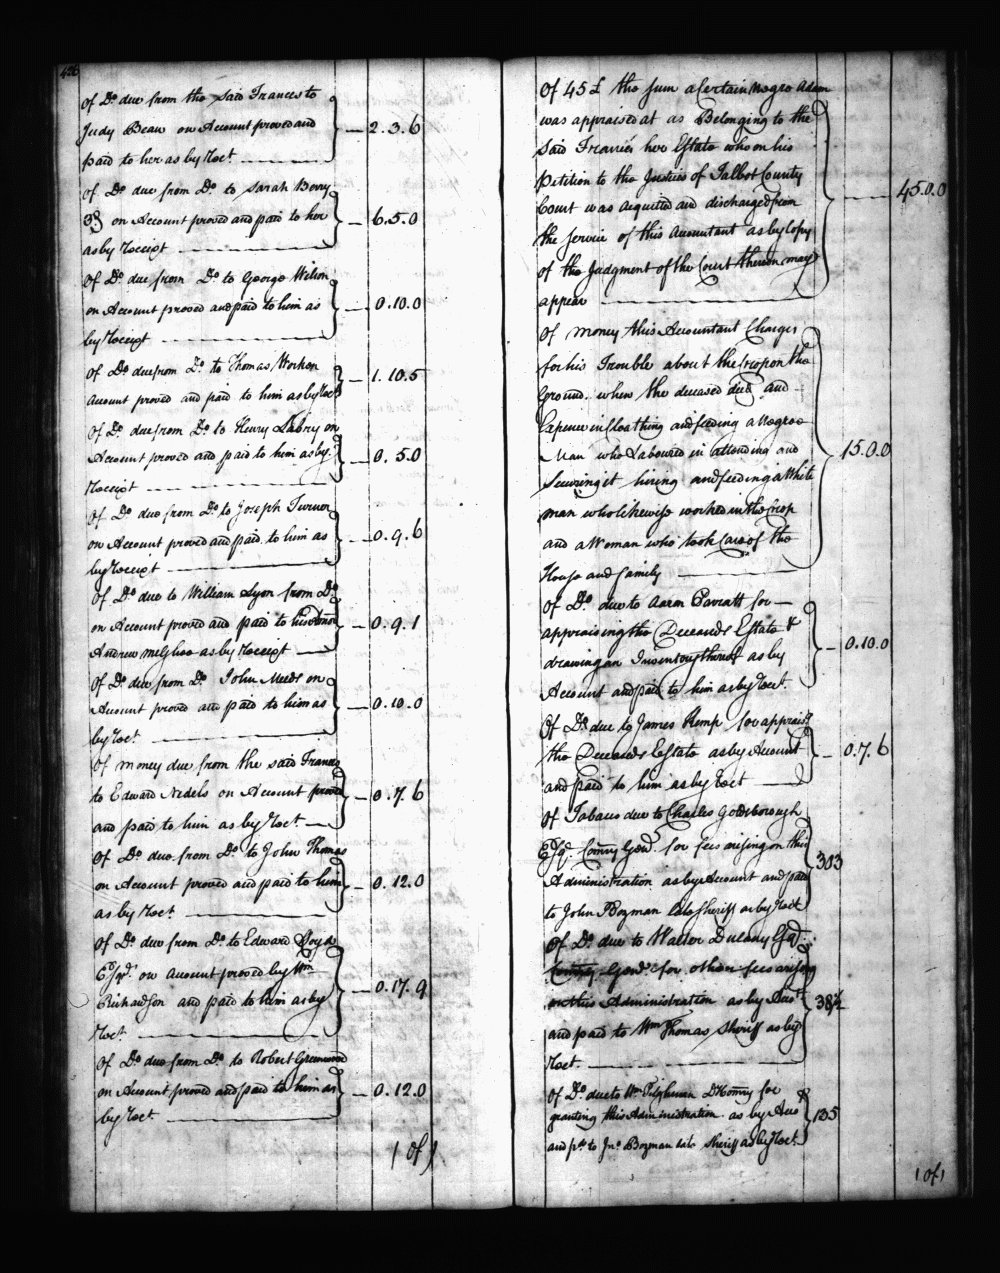 of Do due from the said Frances to
Judy Bean on Account proved and
paid to her as by Rect. 2.3.6
of Do due from Do to Sarah Berry
on Account proved and paid to her
as by Receipt 6.5.0
of Do due from Do to George Wilson
on Account proved and paid to him as
by Receipt 0.10.0
of Do due from Do to Thomas
Account proved and paid to him as by Rect 1.10.5
of Do due from Do to Henry on
Account proved and paid to him as by
Receipt 0.5.0
of Do due from Do to Joseph Turner
on Account proved and paid to him as
by Receipt 0.9.6
of Do due to William Lyon from Do
on Account proved and paid to
Andrew as by Receipt 0.9.1
of Do due from Do John Meeds on
Account proved and paid to him as
by Rect. 0.10.0
of money due from the said Frances
to Edward Nedels on Account proved
and paid to him as by Rect. 0.7.6
of Do due from Do to John Thomas
on Account proved and paid to him
as by Rect 0.12.0
of Do due from Do to Edward Loyd
Esqr. on Account proved by Wm
Richardson and paid to him as by
Rect. 0.17.9
of Do due from Do to Robert
on Account proved and paid to him as
by Rect 0.12.0
1 of 1
of 45£ the sum a Certain Negro Adam
was appraised at as Belonging to the
said her Estate who on his
Petition to the Justices of Talbot County
Court was acquitted and discharged from
the service of this Accountant as by Copy
of the Judgment of the Court thereon may
appear 45.0.0
of money this Accountant Charges
for his Trouble about the Crop on the
Ground when the deceased died and
Expence in Cloathing and feeding a Negroe
Man who Laboured in attending and
Securing it hiring and feeding a White
man who likewise worked in the Crop
and a Woman who took Care of the
House and family 15.0.0
of Do due to Aaron Parratt for
appraising the Deceaseds Estate &
drawing an Inventory thereof as by
Account and paid to him as by Rect. 0.10.0
of Do due to James Kemp for apprais
the Deceaseds Estate as by Account
and paid to him as by Rect 0.7.6
of Tobacco due to Charles Goldsborough
Esqr. Comry Genl. for fees arising on this
Administration as by Account and paid
to John Bozman late Sheriff as by Rect 303
of Do due to Walter Dulany Esqr.
Comry Genl. for other fees arising
on this Administration as by Acct
and paid to Wm Thomas Sheriff as by
Rect.
of Do due to Wm D Comry for
granting this Administration as by Acco
and pd to Jno. Bozman late Sheriff as by Rect. 135
1 of 1